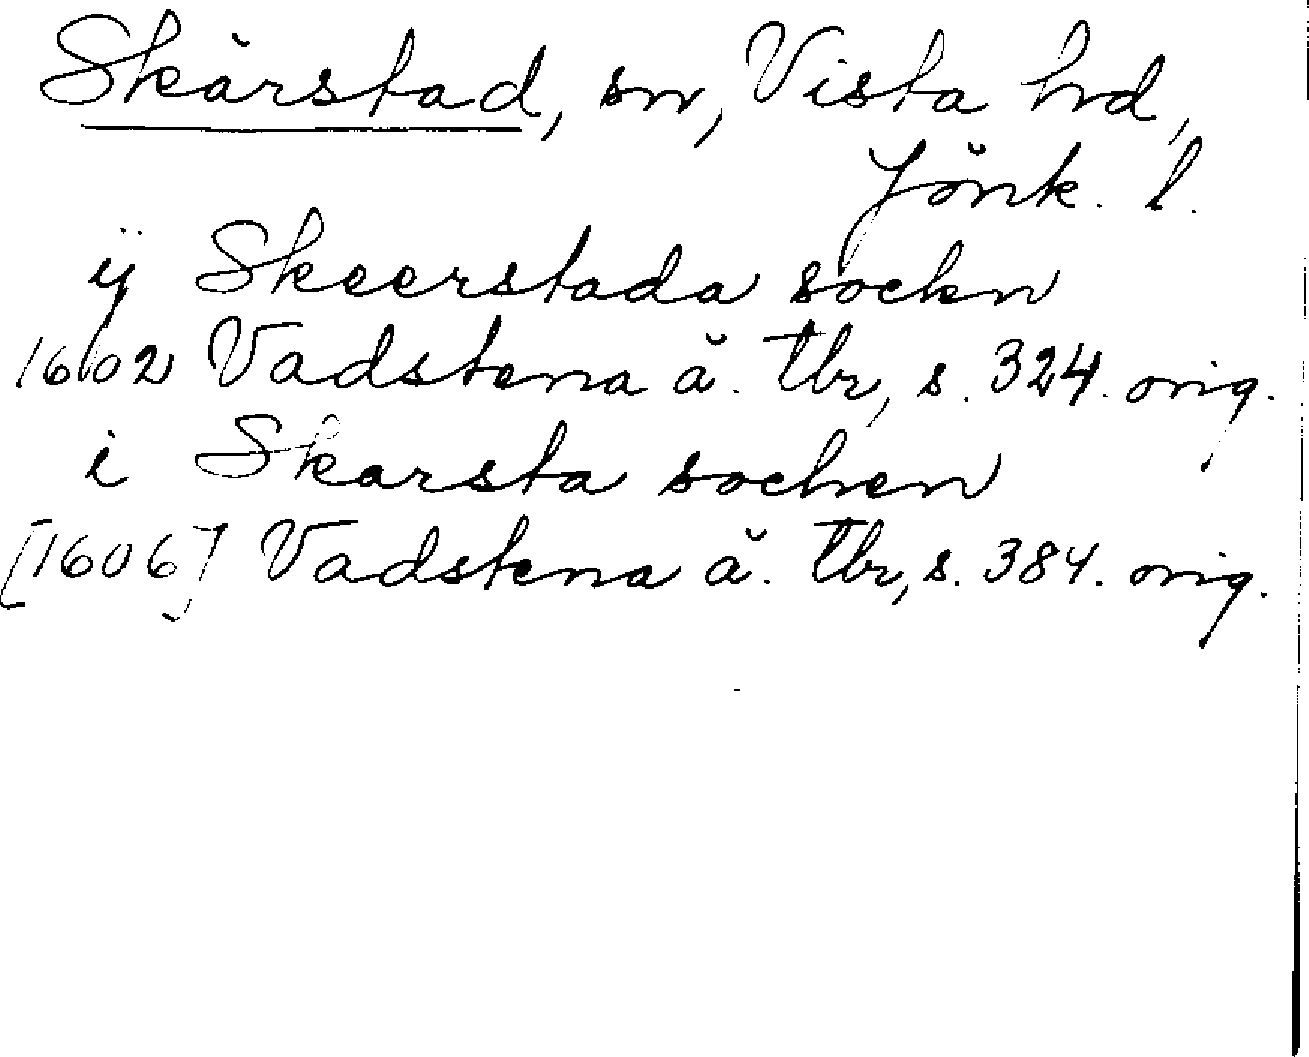 Skärstad, sn, Vista hd,
Jönk. l.
ÿ Skeerstada sockn
1602 Vadstena ä. tbr, s. 324. orig.
i Skarsta sochen
[1606] Vadstena ä. tbr, s. 384. orig.